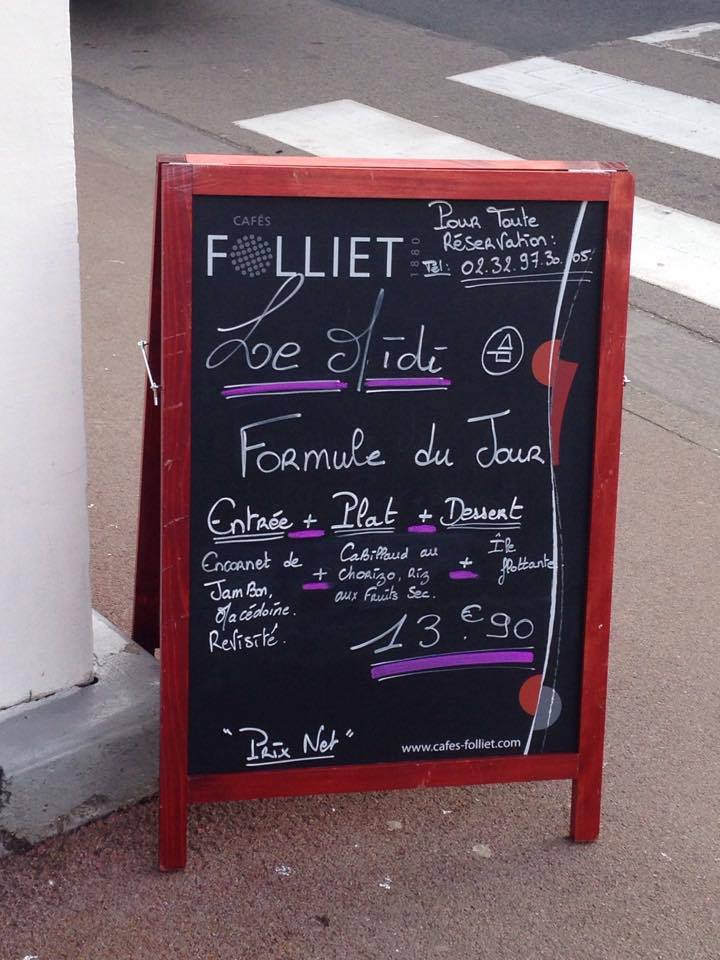 CAFÉS
FOLLIET
1880
Pour Toute
Réservation:
Tél: 02.32.97.30.05.
Le Midi
Formule du Jour
Entrée + Plat + Dessert
Encornet de
Jambon,
Macédoine.
Revisité.
+
Cabillaud au
chorizo, Riz
aux Fruits Sec.
+
Île
flottante
13.€90
"Prix Net"
www.cafes-folliet.com